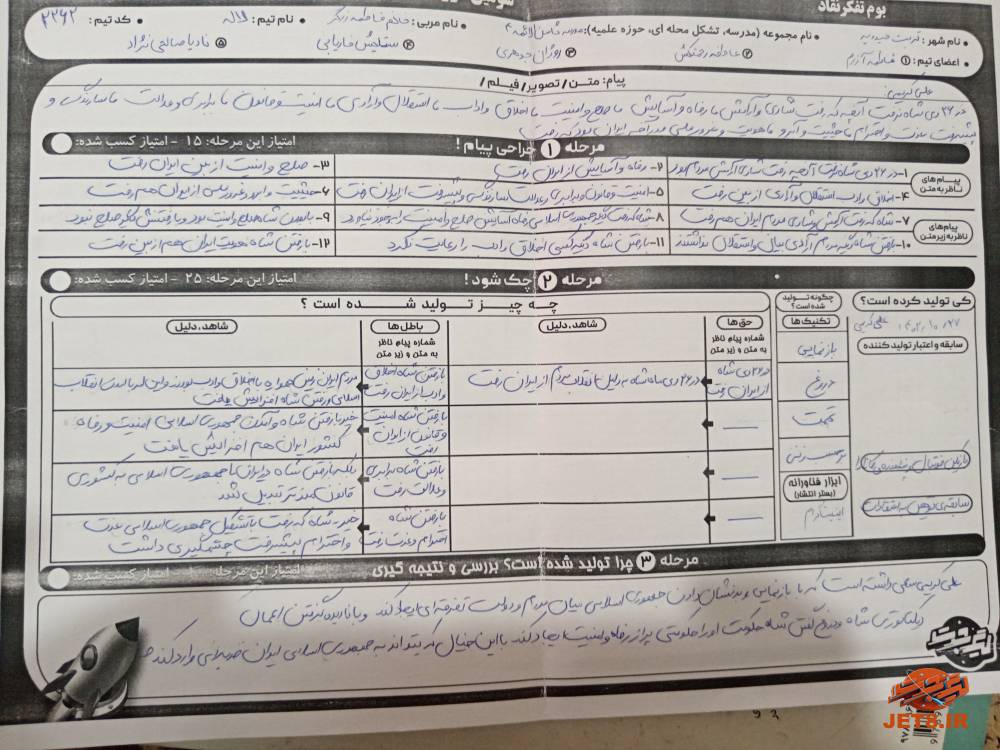 بوم تفکر نقاد
نام شهر: تربت حیدریه
نام مجموعه (مدرسه، تشکل محله ای، حوزه علمیه):
نام مربی: خانم فاطمه زرگر
نام تیم: لاله
کد تیم: ۲۲۶۲
اعضای تیم: ۱
۲ عاطفه
۳ روژان جوهری
۴ ستایش فاریابی
۵ نادیا صالحی نژاد
پیام: متن/تصویر/فیلم/
علی کریمی:
در ۲۶ دی شاه نرفت آنچه که رفت شادی و آرامش ما رفاه و آسایش ما صلح و امنیت ما اخلاق و ادب ما استقلال و آزادی ما امنیت و قانون ما برابری و عدالت ما سازندگی و
پیشرفت عزت و احترام ما حیثیت و آبرو ما هویت و غرور ملی مردم ایران بود که رفت
مرحله ۱ جراحی پیام!
امتیاز این مرحله: ۱۵ - امتیاز کسب شده:
پیام های ناظر به متن
۱- در ۲۶ دی شاه نرفت آنچه رفت شادی آرامش مردم بود
۲- رفاه و آسایش از ایران رفت
۳- صلح و امنیت از بین ایران رفت
۴- اخلاق و ادب استقلال و آزادی از بین رفت
۵- امنیت و قانون و برابری و عدالت سازندگی و پیشرفت از ایران رفت
۶- حیثیت و آبرو و غرور ملی از ایران هم رفت
پیام های ناظر به زیر متن
۷- شاه که رفت آرامش و شادی مردم ایران هم رفت
۸- شاه که رفت دیگر جمهوری اسلامی رفاه آسایش صلح و امنیت
۹- با بودن شاه صلح و امنیت بود و با رفتنش دیگر صلح نبود
۱۰- با رفتن شاه دیگه مردم آزادی بیان و استقلال نداشتند
۱۱- با رفتن شاه دیگه کسی اخلاق و ادب را رعایت نکرد
۱۲- با رفتن شاه هویت ایران هم از بین رفت
مرحله ۲ چک شود!
امتیاز این مرحله: ۲۵ - امتیاز کسب شده:
کی تولید کرده است؟
علی کریمی
سابقه و اعتبار تولید کننده
بازیکن فوتبال
چگونه تولید شده است؟
تکنیک ها
بازنمایی
دروغ
تهمت
برچسب زنی
ابزار فناورانه
(بستر انتشار)
اینستاگرام
چه چیز تولید شده است؟
حق ها
شماره پیام ناظر به متن و زیر متن
شاهد، دلیل
باطل ها
شماره پیام ناظر به متن و زیر متن
شاهد، دلیل
در ۲۶ دی شاه از ایران رفت
در ۲۶ دی ماه شاه به دلیل انقلاب مردم از ایران رفت
با رفتن شاه اخلاق و ادب از ایران رفت
مردم ایران زمین همواره با اخلاق و ادب بودند و این امر با آمدن انقلاب
اسلامی و رفتن شاه افزایش یافت
با رفتن شاه امنیت و قانون از ایران رفت
خیر با رفتن شاه و آمدن جمهوری اسلامی امنیت و رفاه
کشور ایران هم افزایش یافت
با رفتن شاه برابری و عدالت رفت
بلکه با رفتن شاه و ایران با جمهوری اسلامی به کشوری
قانون مندتر تبدیل شد
با رفتن شاه احترام و عزت رفت
خیر، شاه که رفت با تشکیل جمهوری اسلامی عزت
و احترام پیشرفت چشمگیری داشت
مرحله ۳ چرا تولید شده است؟ بررسی و نتیجه گیری
امتیاز این مرحله - امتیاز کسب شده:
علی کریمی سعی داشته است که با بازنمایی و بد نشان دادن جمهوری اسلامی میان مردم و دولت تفرقه ای ایجاد کند و با نادیده گرفتن اعمال
دیکتاتوری شاه و دروغ گفتن شاه حکومت او را حکومتی پر از رفاه و امنیت ایجاد کند با این خیال که بتواند به جمهوری اسلامی ایران ضربه ای وارد کند
JETS.IR